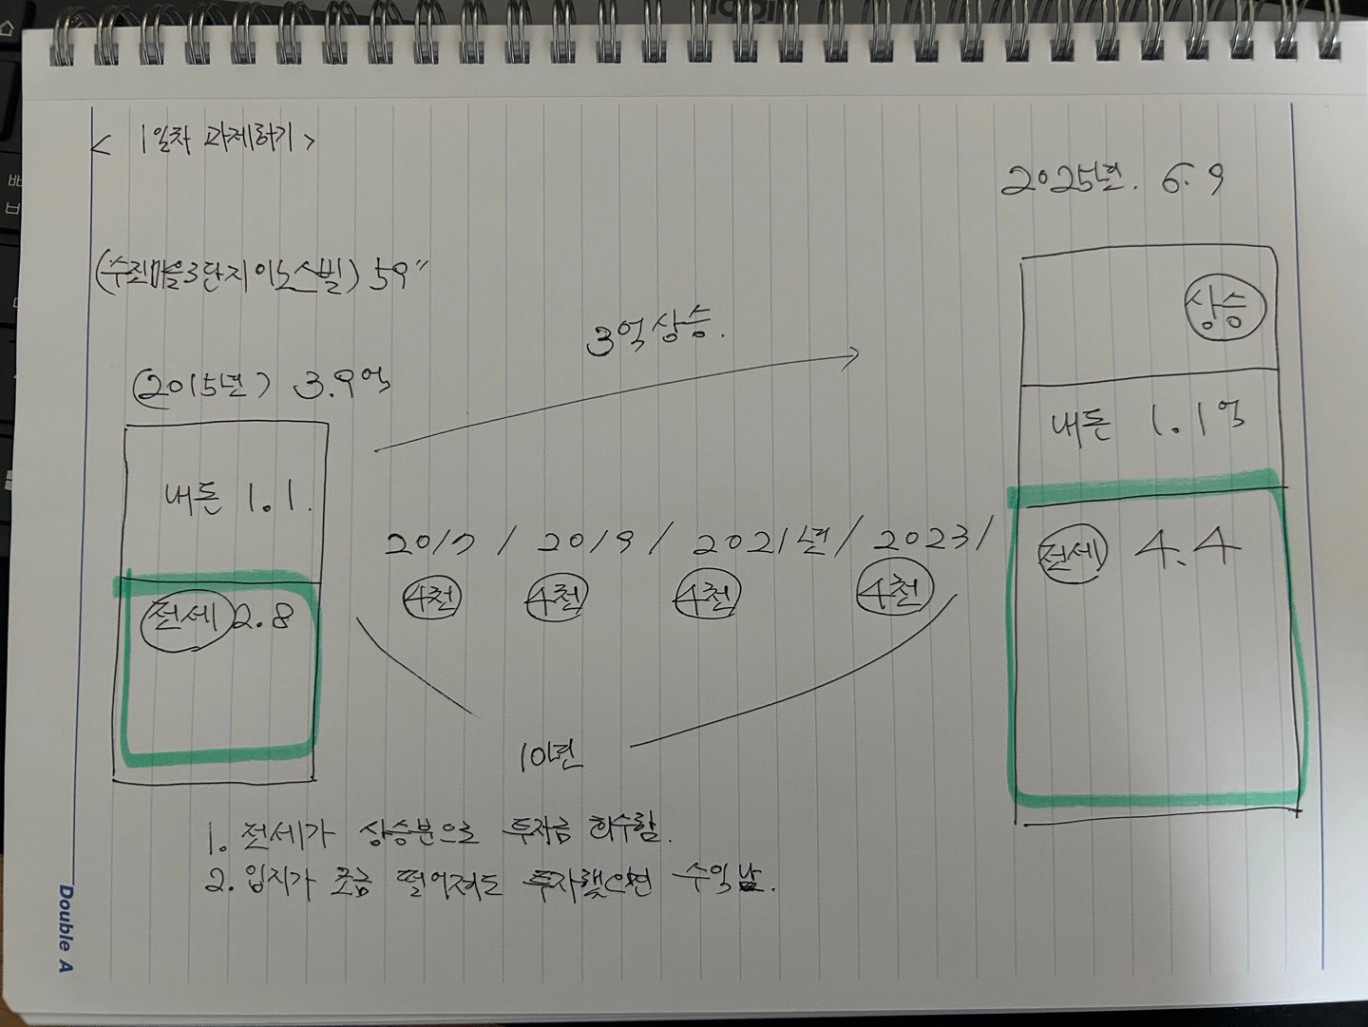 < 1일차 과제하기 >
2025년. 6.9
(수진마을3단지이노스빌) 59"
3억상승.
상승
(2015년) 3.9억
내돈 1.1억
내돈 1.1.
2017 / 2019 / 2021년 / 2023 /
전세 4.4
4천 4천 4천 4천
전세 2.8
10년
1. 전세가 상승분으로 투자금 회수함.
2. 입지가 조금 떨어져도 투자했으면 수익남.
Double A